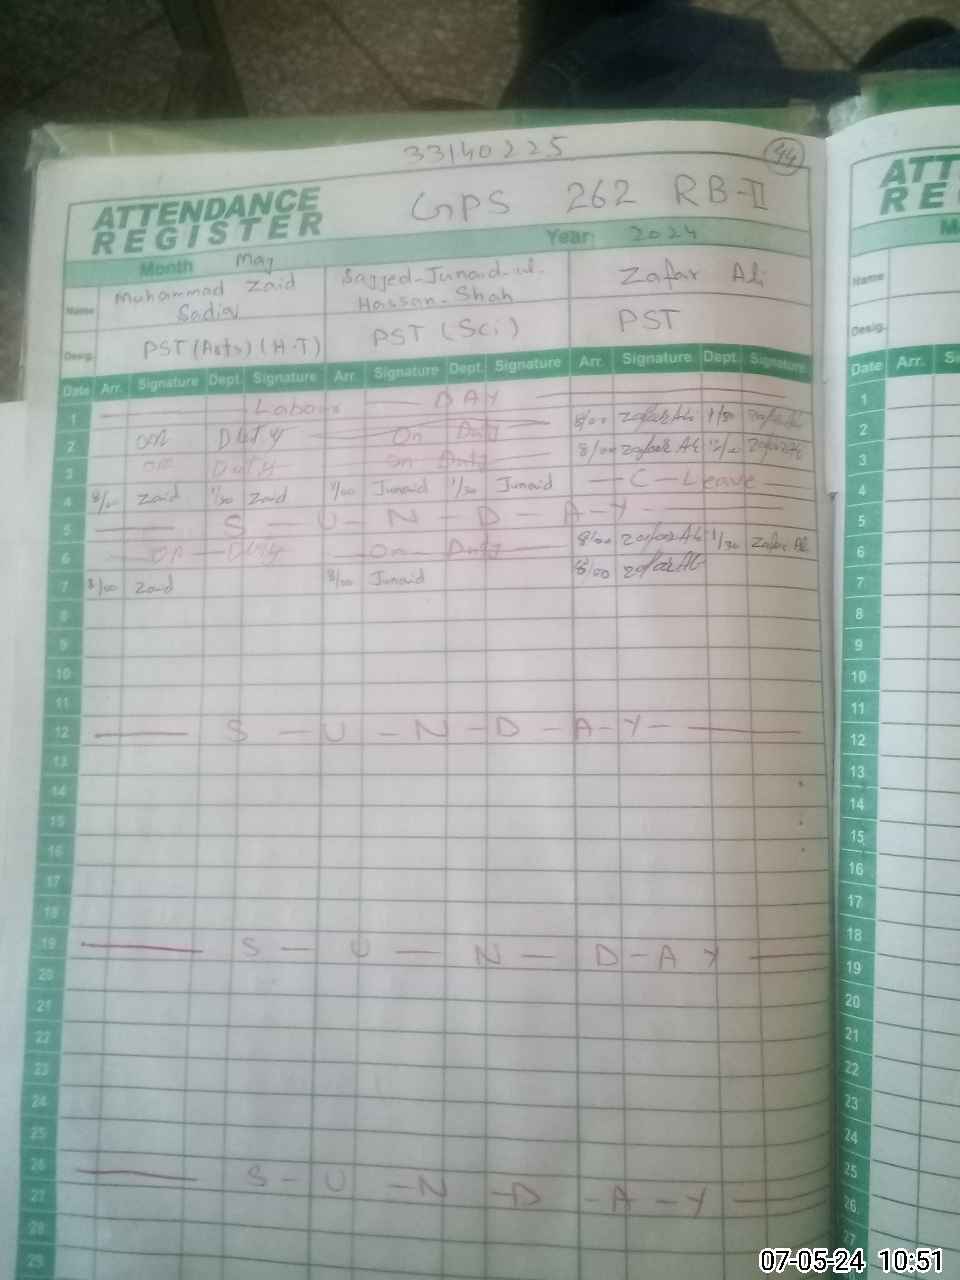 33140225
44
ATTENDANCE REGISTER
GPS 262 RB-II
Month May Year: 2024
Name Muhammad Zaid Sadiq Sajjed-Junaid-ul-Hassan-Shah Zafar Ali
Desig. PST (Arts) (H.T) PST (Sci) PST
Date Arr. Signature Dept. Signature Arr. Signature Dept. Signature Arr. Signature Dept. Signature
1 Labour DAY
2 on DUTY On Duty 8/00 Zafar Ali 1/30 Zafar Ali
3 on Duty on Duty 8/00 Zafar Ali Zafar Ali
4 8/00 Zaid 1/30 Zaid Junaid 1/30 Junaid C-Leave
5 S-U-N-D-A-Y
6 on DUTY On Duty 8/00 Zafar Ali 1/30 Zafar Ali
7 8/00 Zaid 8/00 Junaid 8/00 Zafar Ali
8
9
10
11
12 S-U-N-D-A-Y-
13
14
15
16
17
18
19 S-U-N-D-A-Y
20
21
22
23
24
25
26 S-U-N-D-A-Y
27
28
29
ATT
RE
Name
Desig.
Date Arr.
1
2
3
4
5
6
7
8
9
10
11
12
13
14
15
16
17
18
19
20
21
22
23
24
25
26
27
07-05-24 10:51